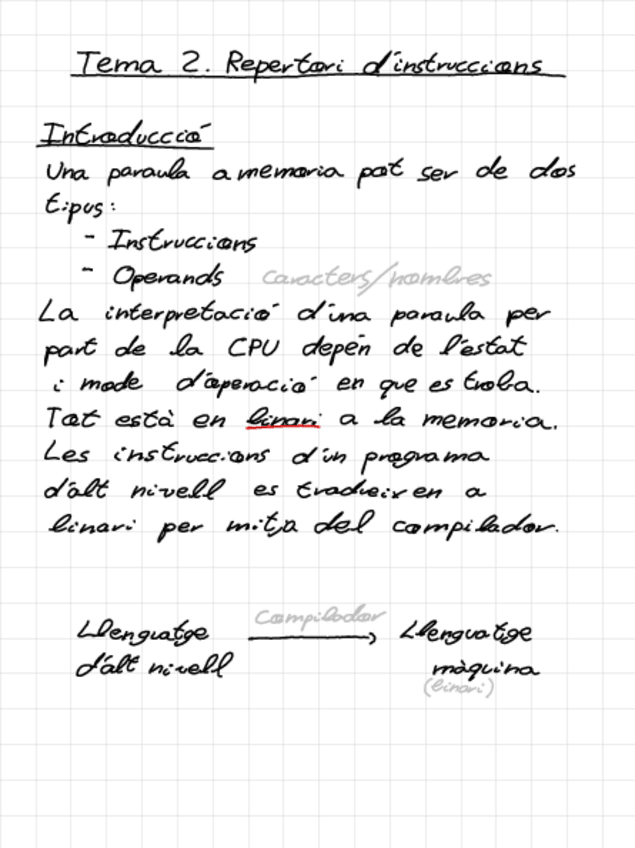 Tema 2. Repertori d'instruccions
Introducció
Una paraula a memoria pot ser de dos
tipus:
- Instruccions
- Operands caracters/nombres
La interpretació d'una paraula per
part de la CPU depén de l'estat
i mode d'operació en que es troba.
Tot està en binari a la memoria.
Les instruccions d'un programa
d'alt nivell es tradueixen a
binari per mitja del compilador.
Compilador
Llenguatge → Llenguatge
d'alt nivell màquina
(binari)